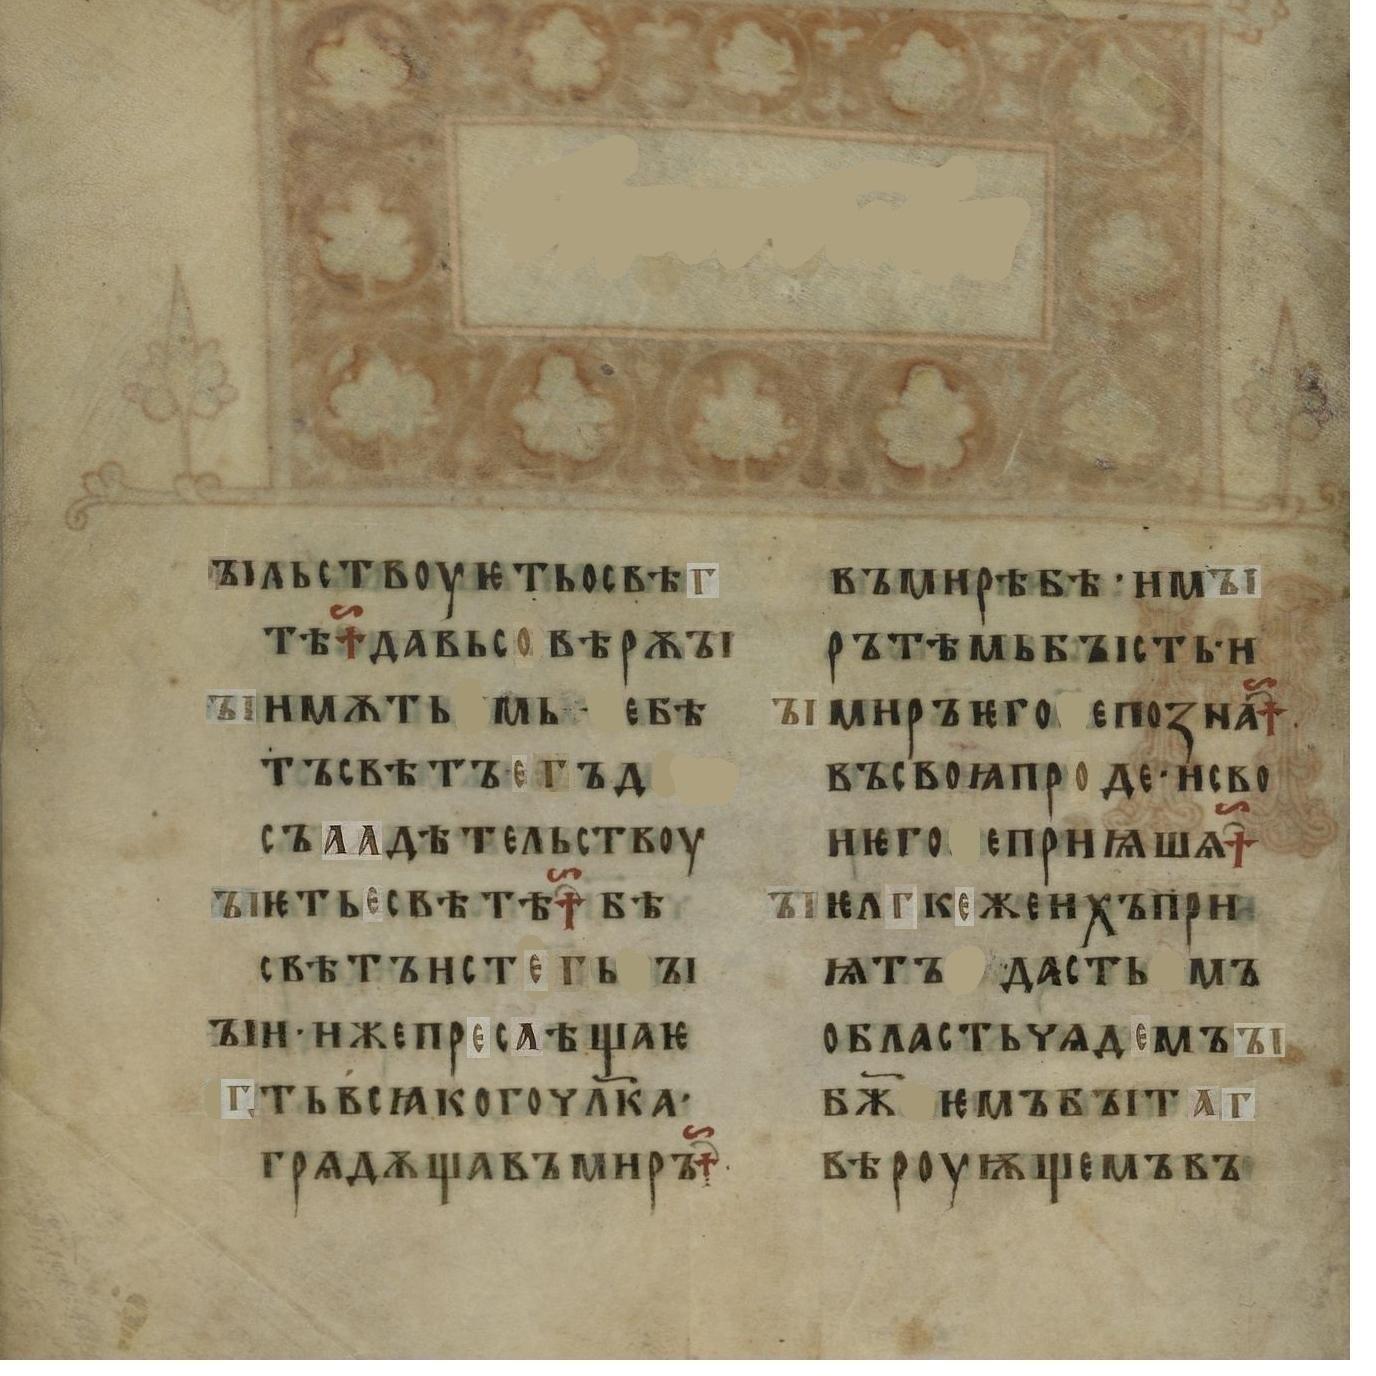 ЪІЛЬСТВОУѤТЬОСВѢГ
ТѢ☦ДАВЬСО ВѢРѪЪІ
ЪІИМѪТЬ МЬ· ЕБѢ
ТЪСВѢТЪЕГЪД
СЪААДѢТЕЛЬСТВОУ
ЪІѤТЬЕСВѢТѢ☦БѢ
СВѢТЪИСТЕГЬ ЪІ
ЪІИ·ИЖЕПРЕСАѢЩАѤ
ГТЬВСꙖКОГОЧЛ҃КА·
ГРѦДѪЩАВЪМИРЪ☦
ВЪМИРѢБѢ·ИМЪІ
РЪТѢМЬБЪІСТЬ·И
ЪІМИРЪѤГО ЕПОЗНА☦
ВЪСВОꙖПРО ДЕ·ИСВО
ИѤГО ЕПРИꙖШѦ☦
ЪІѤЛГКЕЖЕИХЪПРИ
ꙖТЪ ДАСТЬ МЪ
ОБЛАСТЬЧѦДЕМЪЪІ
БЖ҃ ѤМЪБЪІТАГ
ВѢРОУѬЩЕМЪВЪ